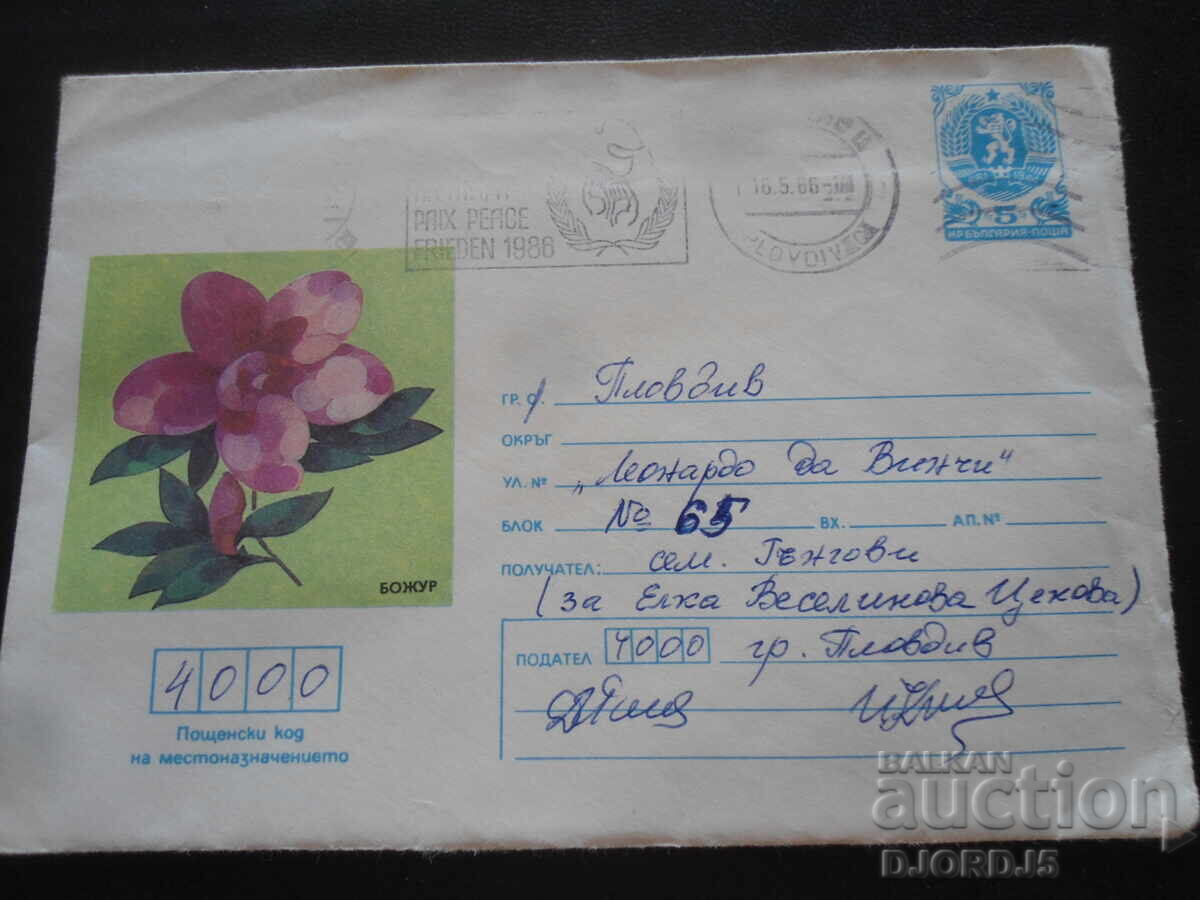 PAIX PEACE
FRIEDEN 1986
16.5.86
PLOVDIV
5
НР БЪЛГАРИЯ·ПОЩА
ГР. С. Пловдив
ОКРЪГ
УЛ. № „Леонардо да Винчи"
БЛОК № 65 ВХ. АП. №
ПОЛУЧАТЕЛ: сем. Гънгови
(за Елка Веселинова Цекова)
ПОДАТЕЛ 4000 гр. Пловдив
БОЖУР
4000
Пощенски код
на местоназначението
BALKAN
auction
DJORDJ5